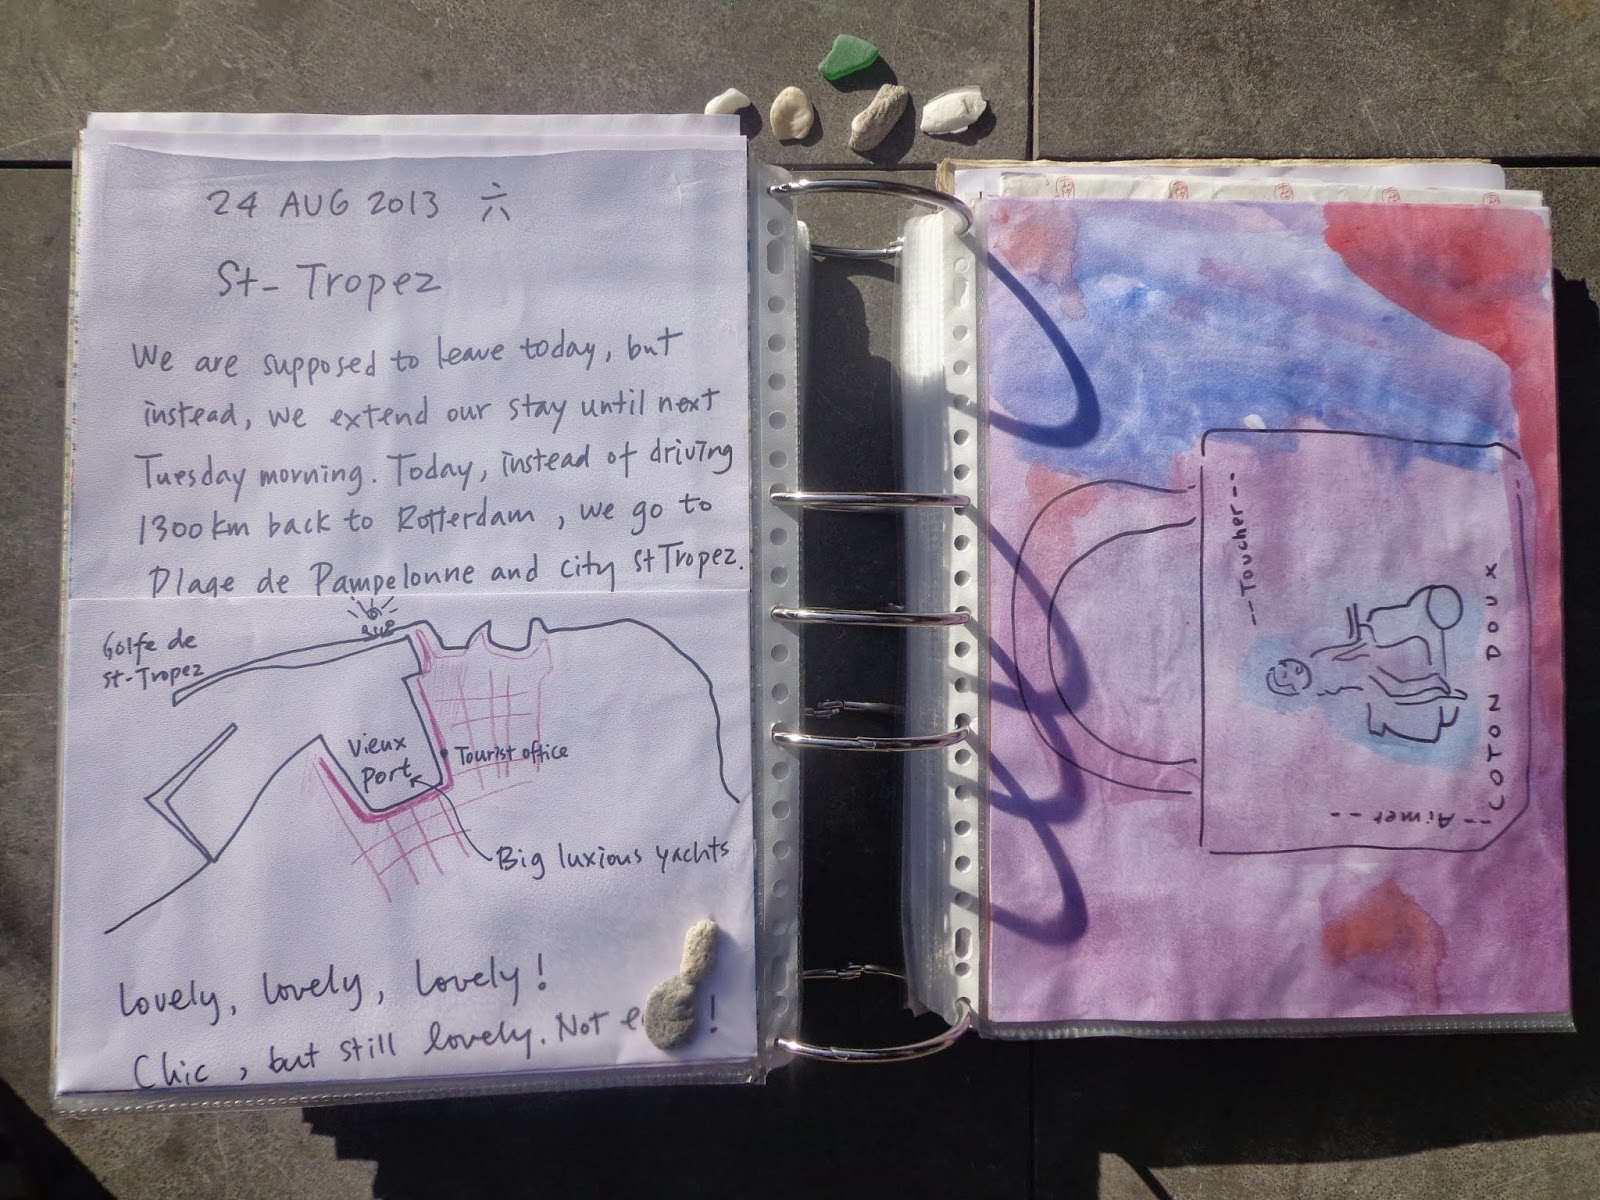 24 AUG 2013 六
St-Tropez
We are supposed to leave today, but
instead, we extend our stay until next
Tuesday morning. Today, instead of driving
1300km back to Rotterdam, we go to
Plage de Pampelonne and city St Tropez.
Golfe de
St-Tropez
Vieux
port
Tourist office
Big luxious yachts
Lovely, lovely, lovely!
Chic, but still lovely. Not !
--Toucher--
COTON DOUX
--Aimer---